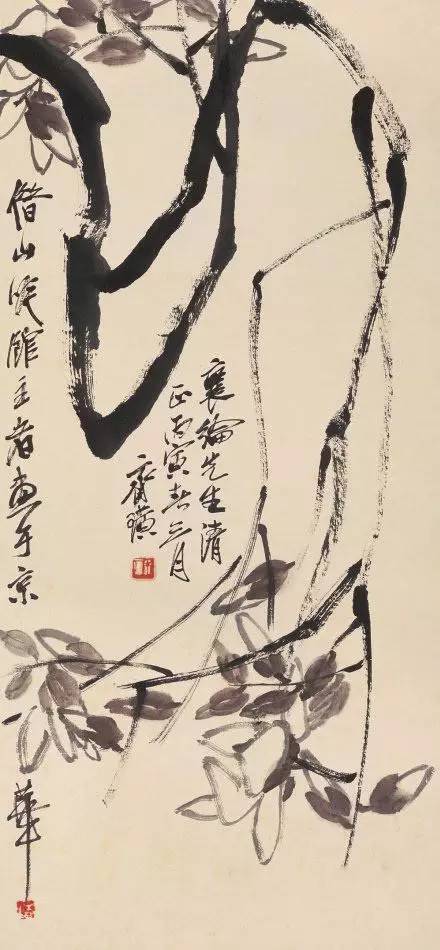 襄綸先生清
正丙寅春三月
齊璜
借山吟館主者畫于京
華